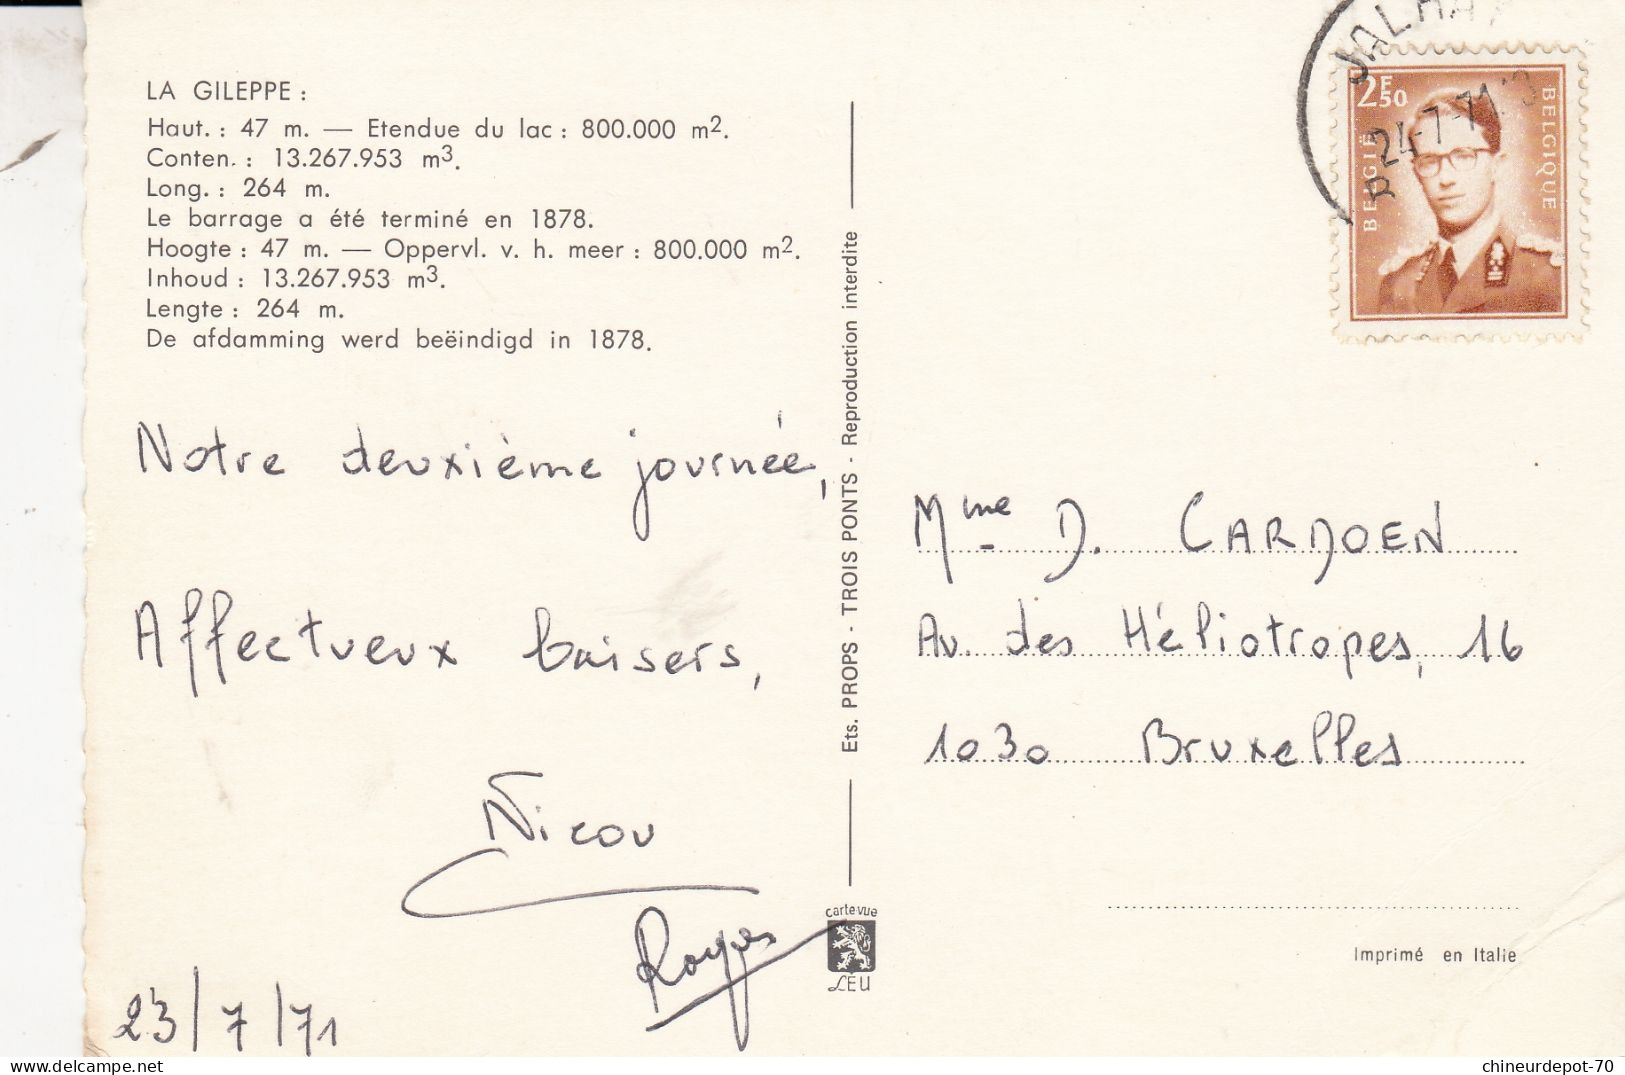 LA GILEPPE :
Haut. : 47 m. — Etendue du lac : 800.000 m2.
Conten. : 13.267.953 m3.
Long. : 264 m.
Le barrage a été terminé en 1878.
Hoogte : 47 m. — Oppervl. v. h. meer : 800.000 m2.
Inhoud : 13.267.953 m3.
Lengte : 264 m.
De afdamming werd beëindigd in 1878.
Notre deuxième journée,
Affectueux baisers,
Nicou
23/7/71
Ets. PROPS - TROIS PONTS - Reproduction interdite
carte vue
LÉU
JALHAY
24-7-71
2F50
BELGIË
BELGIQUE
Mme D. CARDOEN
Av. des Héliotropes, 16
1030 Bruxelles
Imprimé en Italie
chineurdepot-70